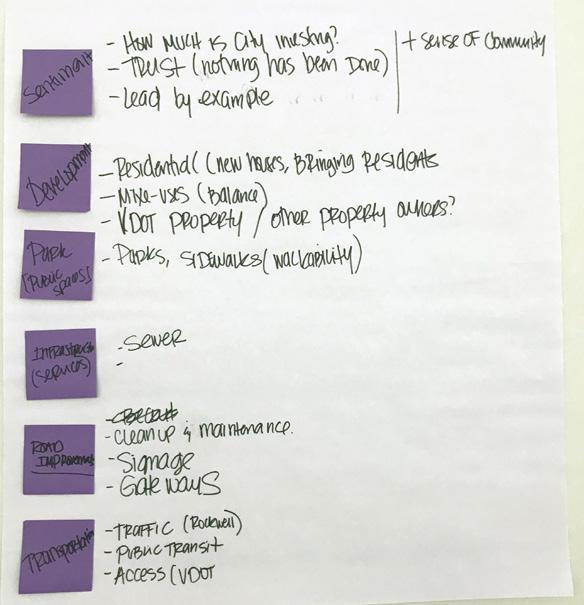 Sentiment
- How much is City investing?
- TRUST (nothing has been done)
- Lead by example
+ sense of Community
Development
- Residential (new houses, Bringing Residents
- Mixe-uses (Balance)
- VDOT PROPERTY / other property owners?
Park
[Public spaces]
- Parks, Sidewalks (walkability)
Infrastruct
(services)
- Sewer
-
Road
Improvements
- Clean up & maintenance.
- Signage
- Gateways
Transportation
- TRAFFIC (Rockwell)
- Public Transit
- Access (VDOT